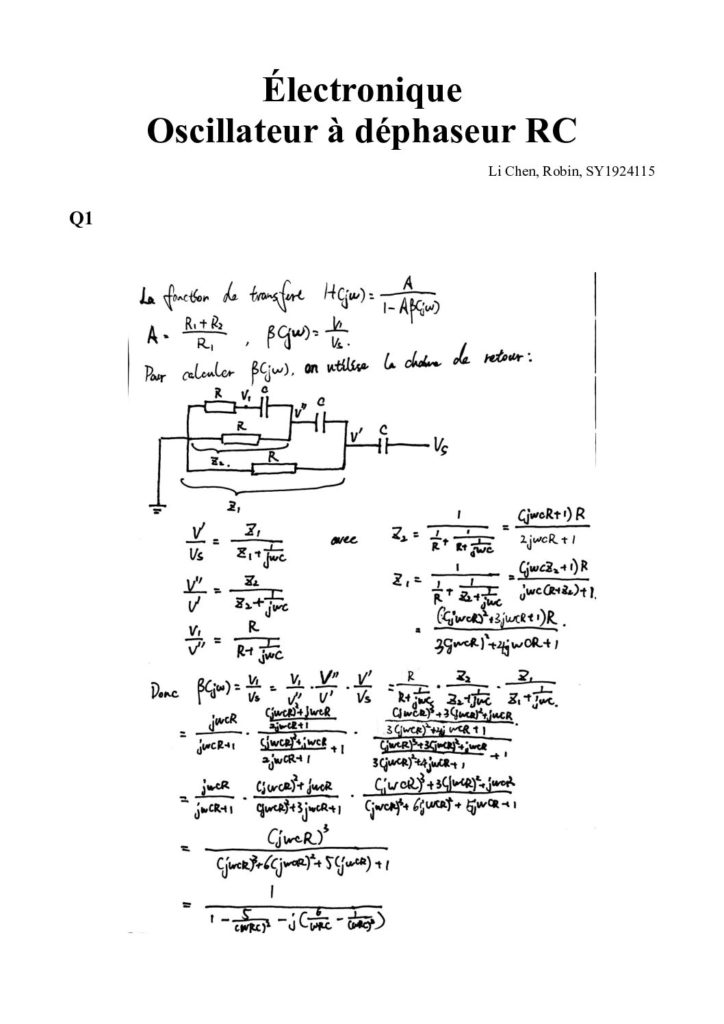 Électronique
Oscillateur à déphaseur RC
Li Chen, Robin, SY1924115
Q1
La fonction de transfert H(jw) = A / (1 - Aβ(jw))
A = (R1 + R2) / R1 , β(jw) = V1 / Vs.
Pour calculer β(jw), on utilise la chaine de retour :
R V1 C
V'' C
R
V' C Vs
Z2.
R
Z1
V' / Vs = Z1 / (Z1 + 1/jwc) avec Z2 = 1 / (1/R + 1/(R + 1/jwc)) = (jwcR + 1)R / (2jwcR + 1)
V'' / V' = Z2 / (Z2 + 1/jwc) Z1 = 1 / (1/R + 1/(Z2 + 1/jwc)) = (jwcZ2 + 1)R / (jwc(R + Z2) + 1)
V1 / V'' = R / (R + 1/jwc) = ((jwcR)² + 3jwcR + 1)R / (3(jwcR)² + 4jwCR + 1)
Donc β(jw) = V1/Vs = V1/V'' · V''/V' · V'/Vs = R / (R + 1/jwc) · Z2 / (Z2 + 1/jwc) · Z1 / (Z1 + 1/jwc).
= jwcR / (jwcR + 1) · (((jwcR)² + jwcR) / (2jwcR + 1)) / (((jwcR)² + jwcR) / (2jwCR + 1) + 1) · (((jwcR)³ + 3(jwcR)² + jwcR) / (3(jwcR)² + 4jwcR + 1)) / (((jwcR)³ + 3(jwcR)² + jwcR) / (3(jwcR)² + 4jwcR + 1) + 1)
= jwcR / (jwCR + 1) · ((jwcR)² + jwcR) / ((jwcR)² + 3jwcR + 1) · ((jwCR)³ + 3(jwcR)² + jwcR) / ((jwcR)³ + 6(jwcR)² + 5jwCR + 1)
= (jwcR)³ / ((jwcR)³ + 6(jwcR)² + 5(jwcR) + 1)
= 1 / (1 - 5/(wRC)² - j(6/wRC - 1/(wRC)³))